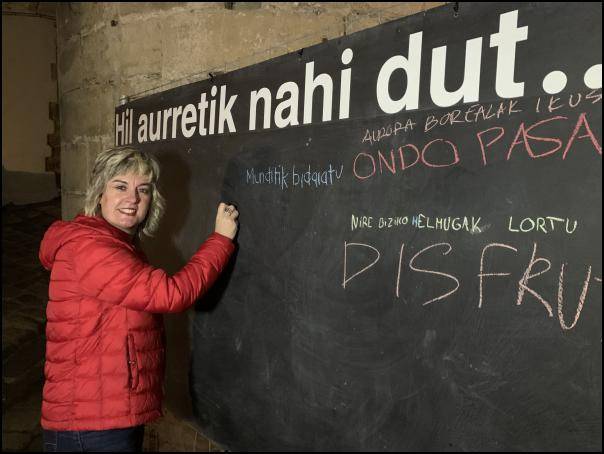 Hil aurretik nahi dut..
AURORA BOREALAK IKUS
ONDO PASA
Munditik bidaiatu
NIRE BIZIKO HELMUGAK LORTU
DISFRU